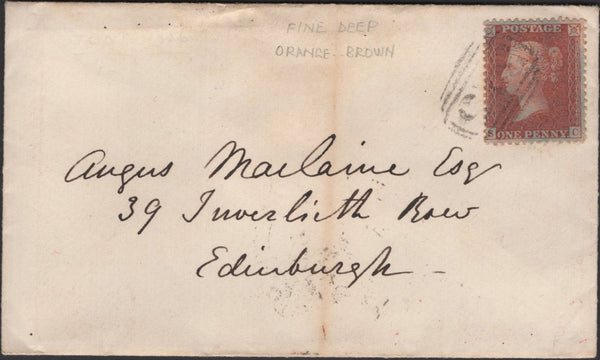 FINE DEEP
ORANGE-BROWN
POSTAGE
S ONE PENNY C
Angus Maclaine Esq
39 Inverlieth Row
Edinburgh -